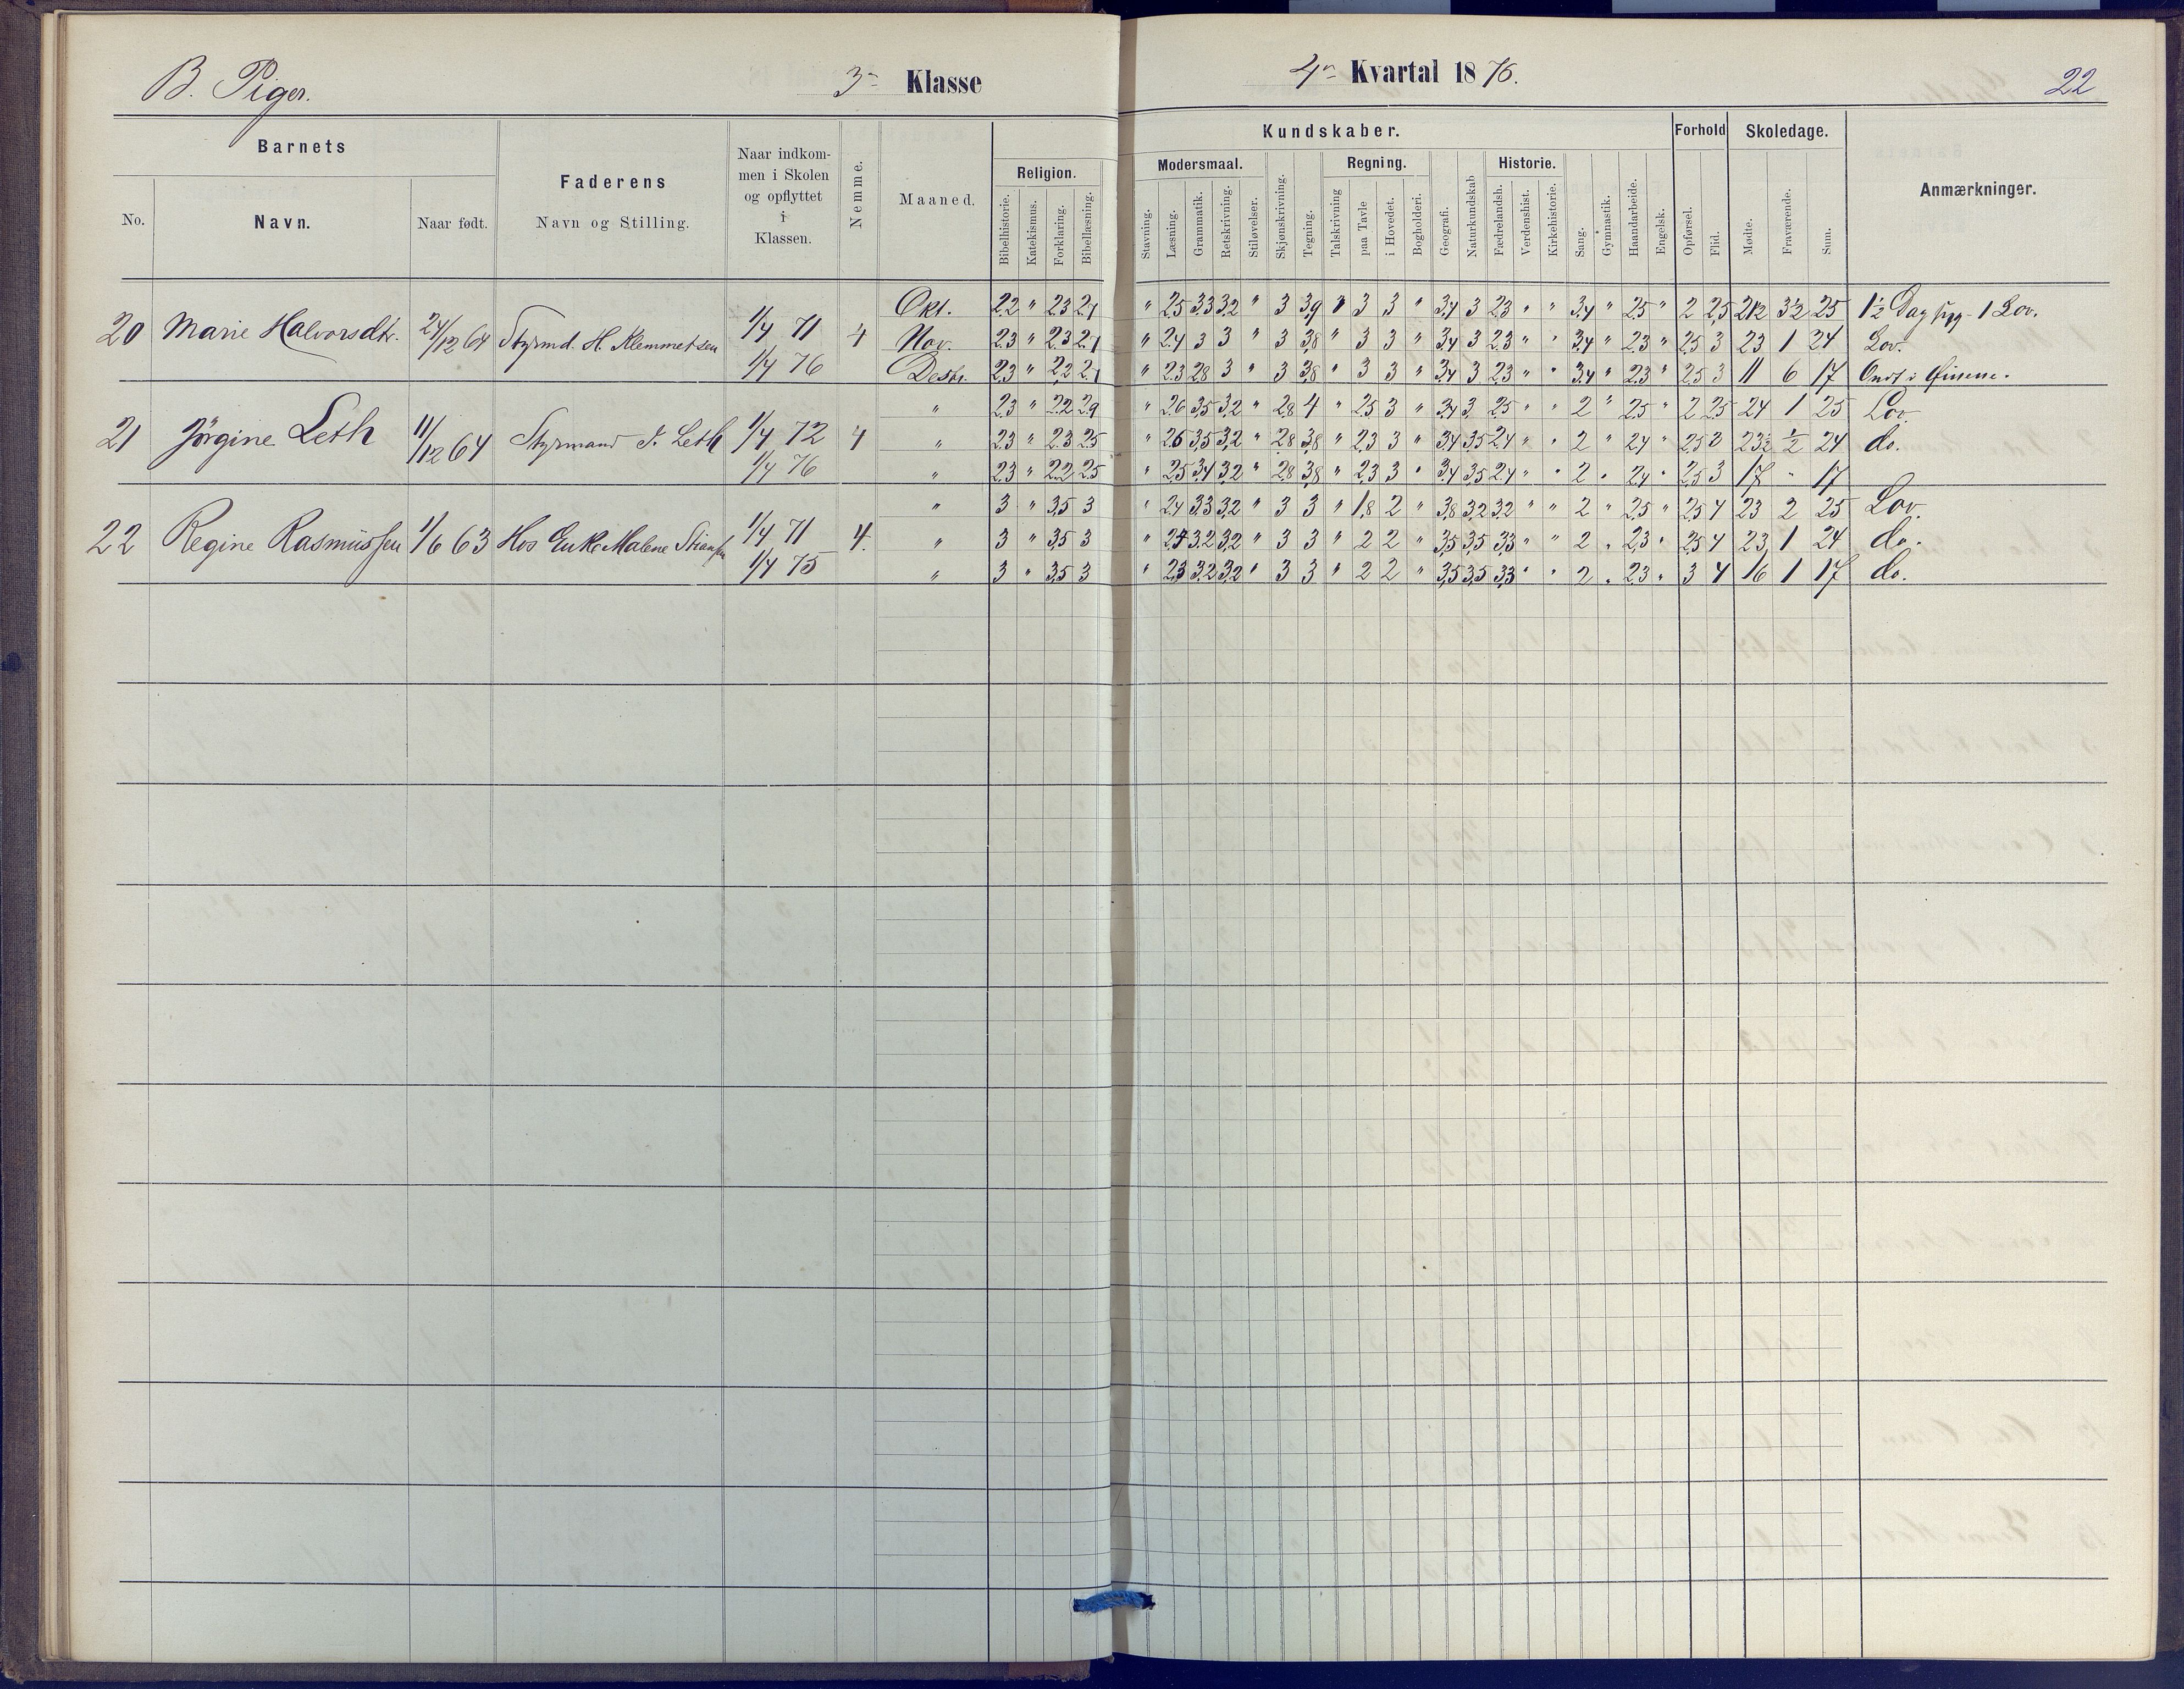 B. Piger.
3- Klasse
4n Kvartal 1876.
22
Barnets
Faderens
Naar indkom-
men i Skolen
og opflyttet
i
Klassen.
Nemme.
Maaned.
Religion.
Kundskaber.
Forhold
Skoledage.
Anmærkninger.
No.
Navn.
Naar født.
Navn og Stilling.
Modersmaal.
Regning.
Historie.
Bibelhistorie.
Katekismus.
Forklaring.
Bibellæsning.
Stavning.
Læsning.
Grammatik.
Retskrivning.
Stiløvelser.
Skjønskrivning.
Tegning.
Talskrivning
paa Tavle
i Hovedet.
Bogholderi.
Geografi.
Naturkundskab
Fædrelandsh.
Verdenshist.
Kirkehistorie.
Sang.
Gymnastik.
Haandarbeide.
Engelsk.
Opførsel.
Flid.
Mødte.
Fraværende.
Sum.
20 Marie Halvorsdtr. 24/12 64 Styrmd. H. Klemmetsen 1/4 71 1/4 76 4
Okt. 2,2 " 2,3 2,1 " 2,5 3,3 3,2 " 3 3,9 " 3 3 " 3,4 3 2,3 " " 3,4 " 2,5 " 2 2,5 21½ 3½ 25 1½ Dag syg - 1 Lov.
Nov. 2,3 " 2,3 2,1 " 2,4 3 3 " 3 3,8 " 3 3 " 3,4 3 2,3 " " 3,4 " 2,3 " 2,5 3 23 1 24 Lov.
Desbr. 2,3 " 2,2 2,1 " 2,3 2,8 3 " 3 3,8 " 3 3 " 3,4 3 2,3 " " 3,4 " 2,3 " 2,5 3 11 6 17 Ondt i Øinene.
21 Jörgine Leth 11/12 64 Styrmand J. Leth 1/4 72 1/4 76 4
" 2,3 " 2,2 2,9 " 2,6 3,5 3,2 " 2,8 4 " 2,5 3 " 3,4 3 2,5 " " 2 " 2,5 " 2 2,5 24 1 25 Lov.
" 2,3 " 2,3 2,5 " 2,6 3,5 3,2 " 2,8 3,8 " 2,3 3 " 3,4 3,5 2,4 " " 2 " 2,4 " 2,5 3 23½ ½ 24 do.
" 2,3 " 2,2 2,5 " 2,5 3,4 3,2 " 2,8 3,8 " 2,3 3 " 3,4 3,5 2,4 " " 2 " 2,4 " 2,5 3 17 " 17
22 Regine Rasmussen 1/6 63 Hos Enke Malene 1/4 71 1/4 75 4.
" 3 " 3,5 3 " 2,4 3,3 3,2 " 3 3 " 1,8 2 " 3,8 3,2 3,2 " " 2 " 2,5 " 2,5 4 23 2 25 Lov.
" 3 " 3,5 3 " 3,2 3,2 " 3 3 " 2 2 " 3,5 3,5 3,3 " " 2 " 2,3 " 2,5 4 23 1 24 do.
" 3 " 3,5 3 " 2,3 3,2 3,2 " 3 3 " 2 2 " 3,5 3,5 3,3 " " 2 " 2,3 " 3 4 16 1 17 do.